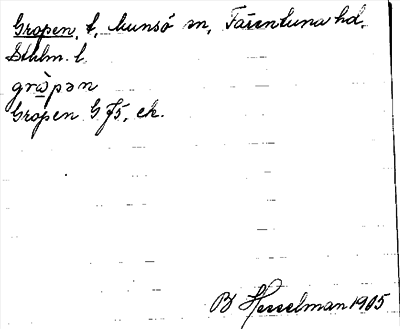 Gropen, t, Munsö sn, Färentuna hd.
Sthlm. l
grɷ̀pən
Gropen G J5, ek.
B Hesselman 1905